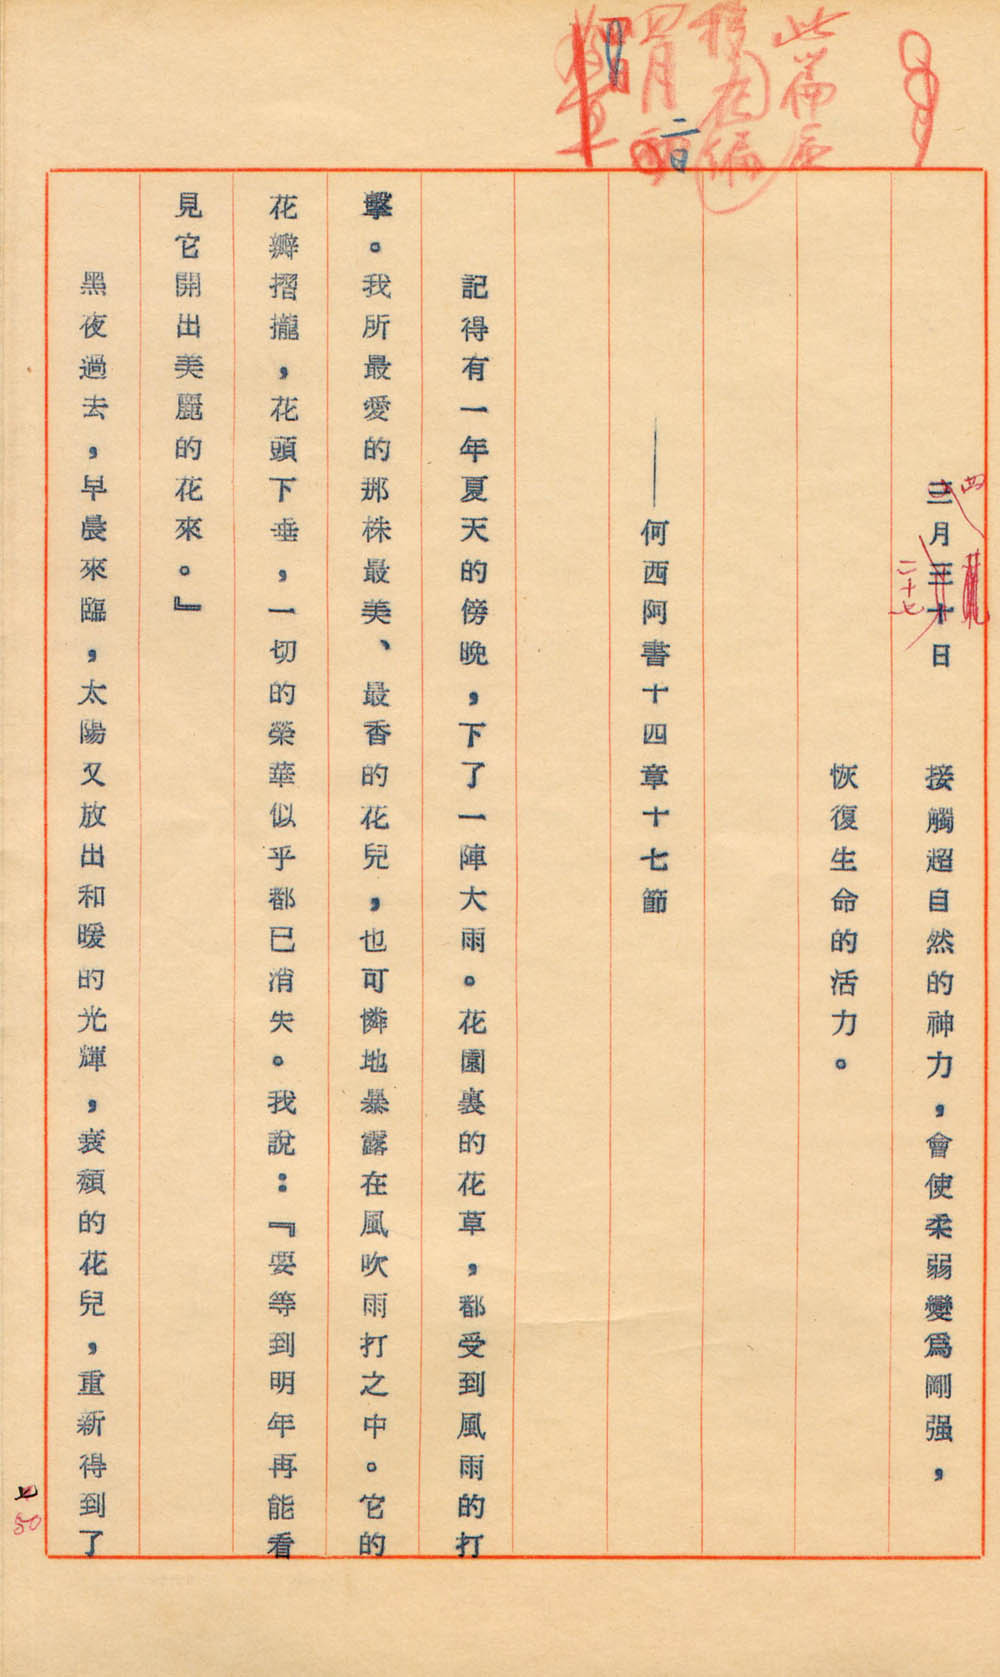 此篇應
二日
三月三十日　接觸超自然的神力，會使柔弱變爲剛强，
四
二十七
恢復生命的活力。
——何西阿書十四章十七節
記得有一年夏天的傍晚，下了一陣大雨。花園裏的花草，都受到風雨的打
擊。我所最愛的那株最美、最香的花兒，也可憐地暴露在風吹雨打之中。它的
花瓣摺攏，花頭下垂，一切的榮華似乎都已消失。我說：『要等到明年再能看
見它開出美麗的花來。』
黑夜過去，早晨來臨，太陽又放出和暖的光輝，衰頹的花兒，重新得到了
50